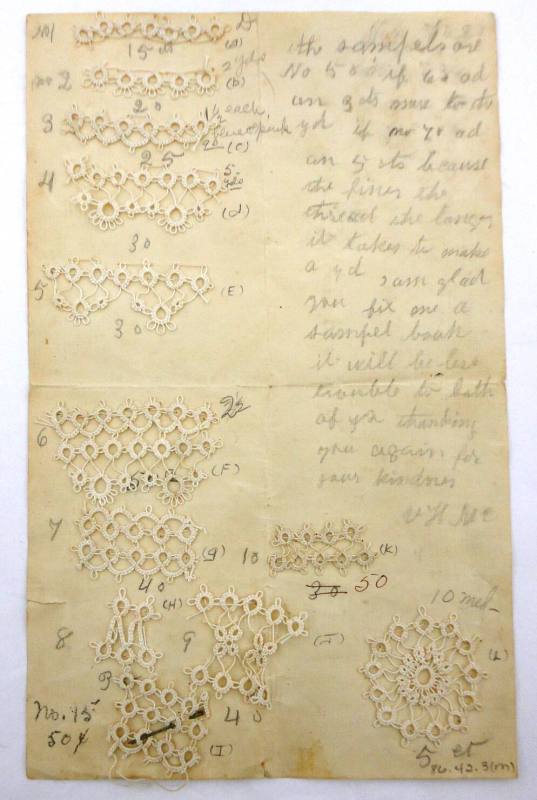 No 1
15 ct
(a)
2 yds
no 2
(b)
20
1½ each
3
(c)
25
4
5 yds
(d)
30
5
(E)
30
6
(F)
50
7
(g)
40
8
(H)
9
40
No. 15
50¢
(I)
10
(K)
30 50
10 med
(L)
5 ct
86.42.3(m)
the sampels are
No 50 if 60 ad
an 3 cts more to the
yd if no 70 ad
an 5 cts because
the finer the
thread the longer
it takes to make
a yd I am glad
you fix me a
sampel book
it will be less
trouble to both
of us thanking
you again for
your kindnes